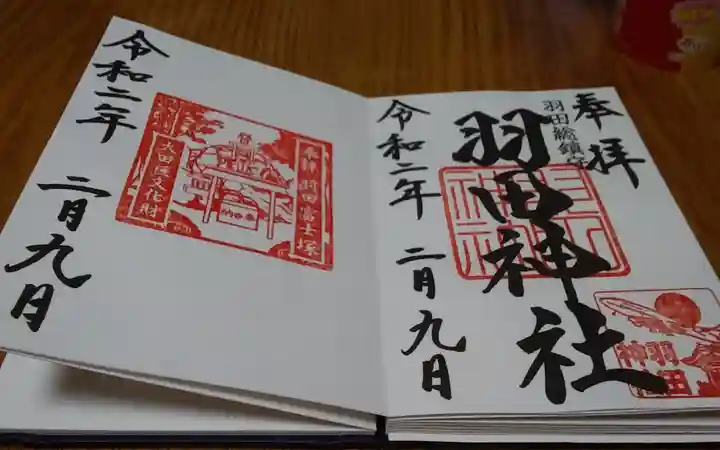 奉拝
羽田総鎮守
羽田神社
令和二年
二月九日
羽田
神社
令和二年
二月九日
奉拝 羽田富士塚
大田区文化財